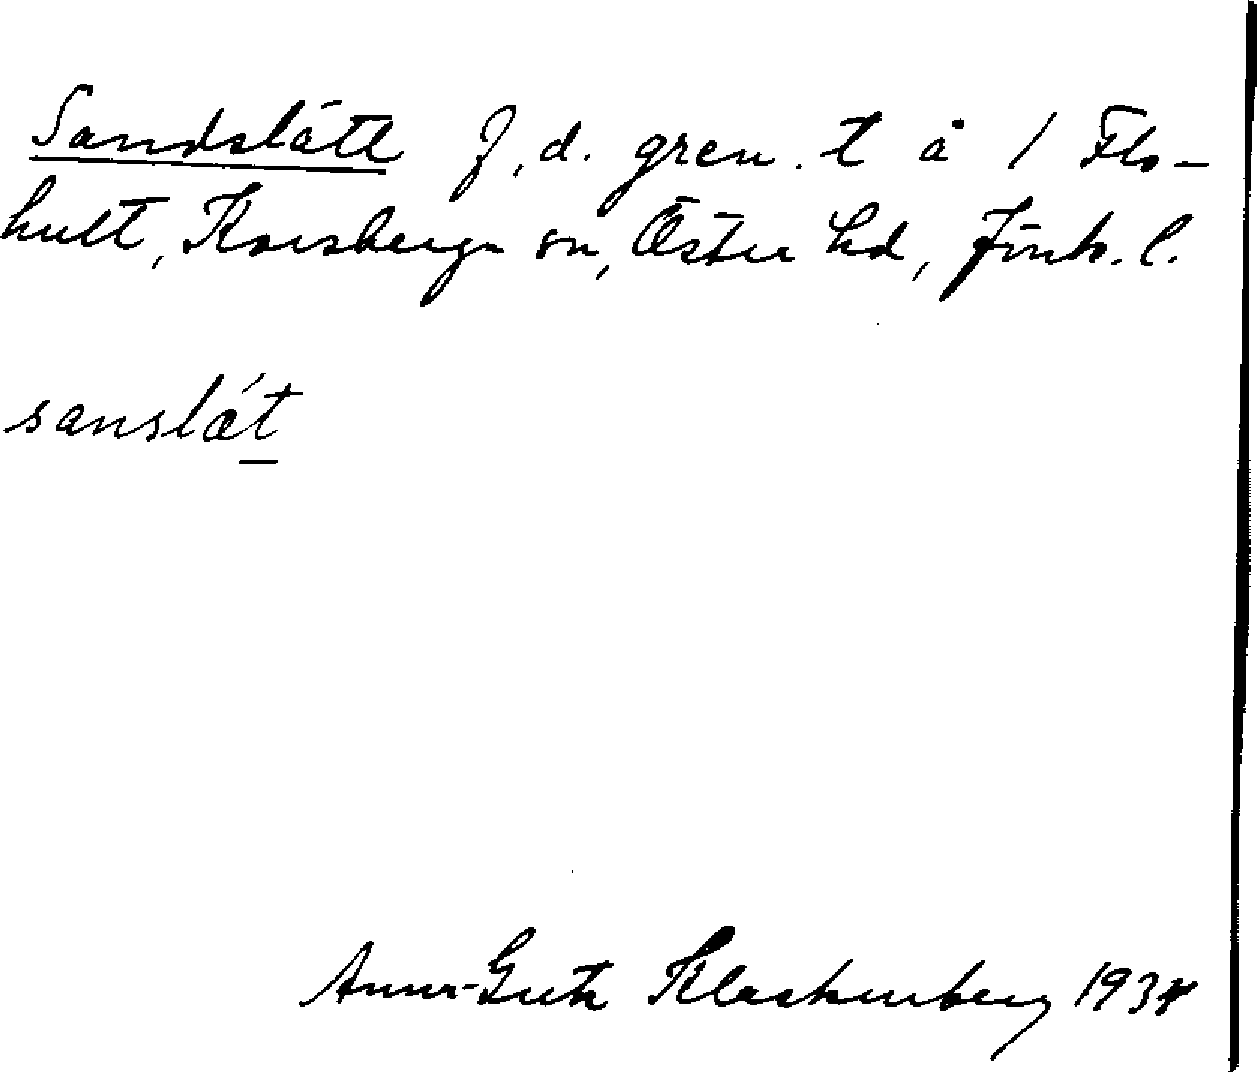 Sandslätt f, d. gren. t å 1 Flo-
hult, Korsberga sn, Öster hd, Jönk. l.
sanslǽt
Anna-Greta Klackenberg 1934